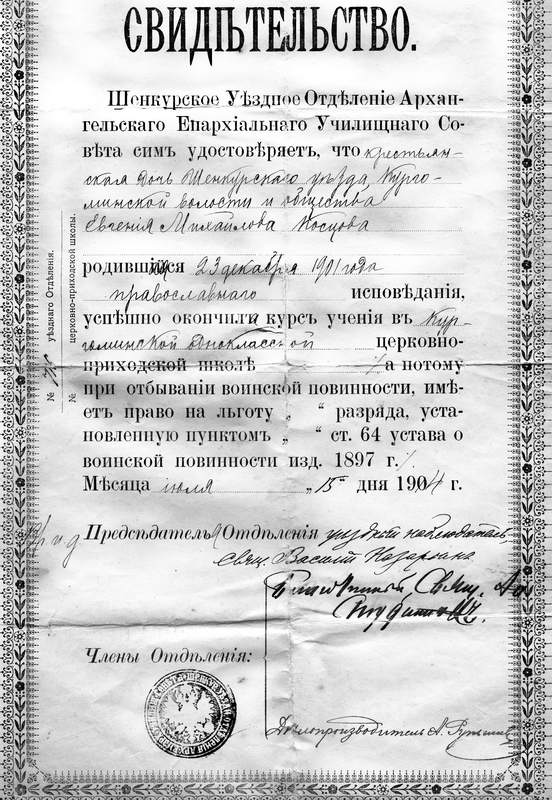 СВИДѢТЕЛЬСТВО.
Шенкурское Уѣздное Отдѣленіе Архан-
гельскаго Епархіальнаго Училищнаго Со-
вѣта симъ удостовѣряетъ, что крестьян-
ская дочь Шенкурскаго уѣзда, Курго-
минской волости и общества
Евгенія Михайлова Косцова
родившійся 23 декабря 1901 года
православнаго исповѣданія,
успѣшно окончилъ курсъ ученія въ Кур-
гоминской одноклассной церковно-
приходской школѣ а потому
при отбываніи воинской повинности, имѣ-
етъ право на льготу „ “ разряда, уста-
новленную пунктомъ „ “ ст. 64 устава о
воинской повинности изд. 1897 г.
Мѣсяца іюля „15“ дня 1914 г.
Предсѣдатель Отдѣленія уѣздный наблюдатель
Свящ. Василій
Благочинный Свящ.
Члены Отдѣленія:
Дѣлопроизводитель А.
№ уѣзднаго Отдѣленія.
№ церковно-приходской школы.